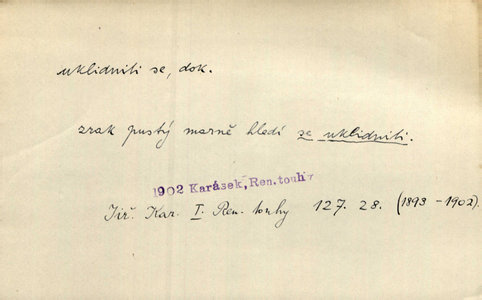 uklidniti se, dok.
zrak pustý marně hledí se uklidniti.
1902 Karásek, Ren.touhy
Jiř. Kar. I. Ren. touhy 127. 28. (1893-1902).